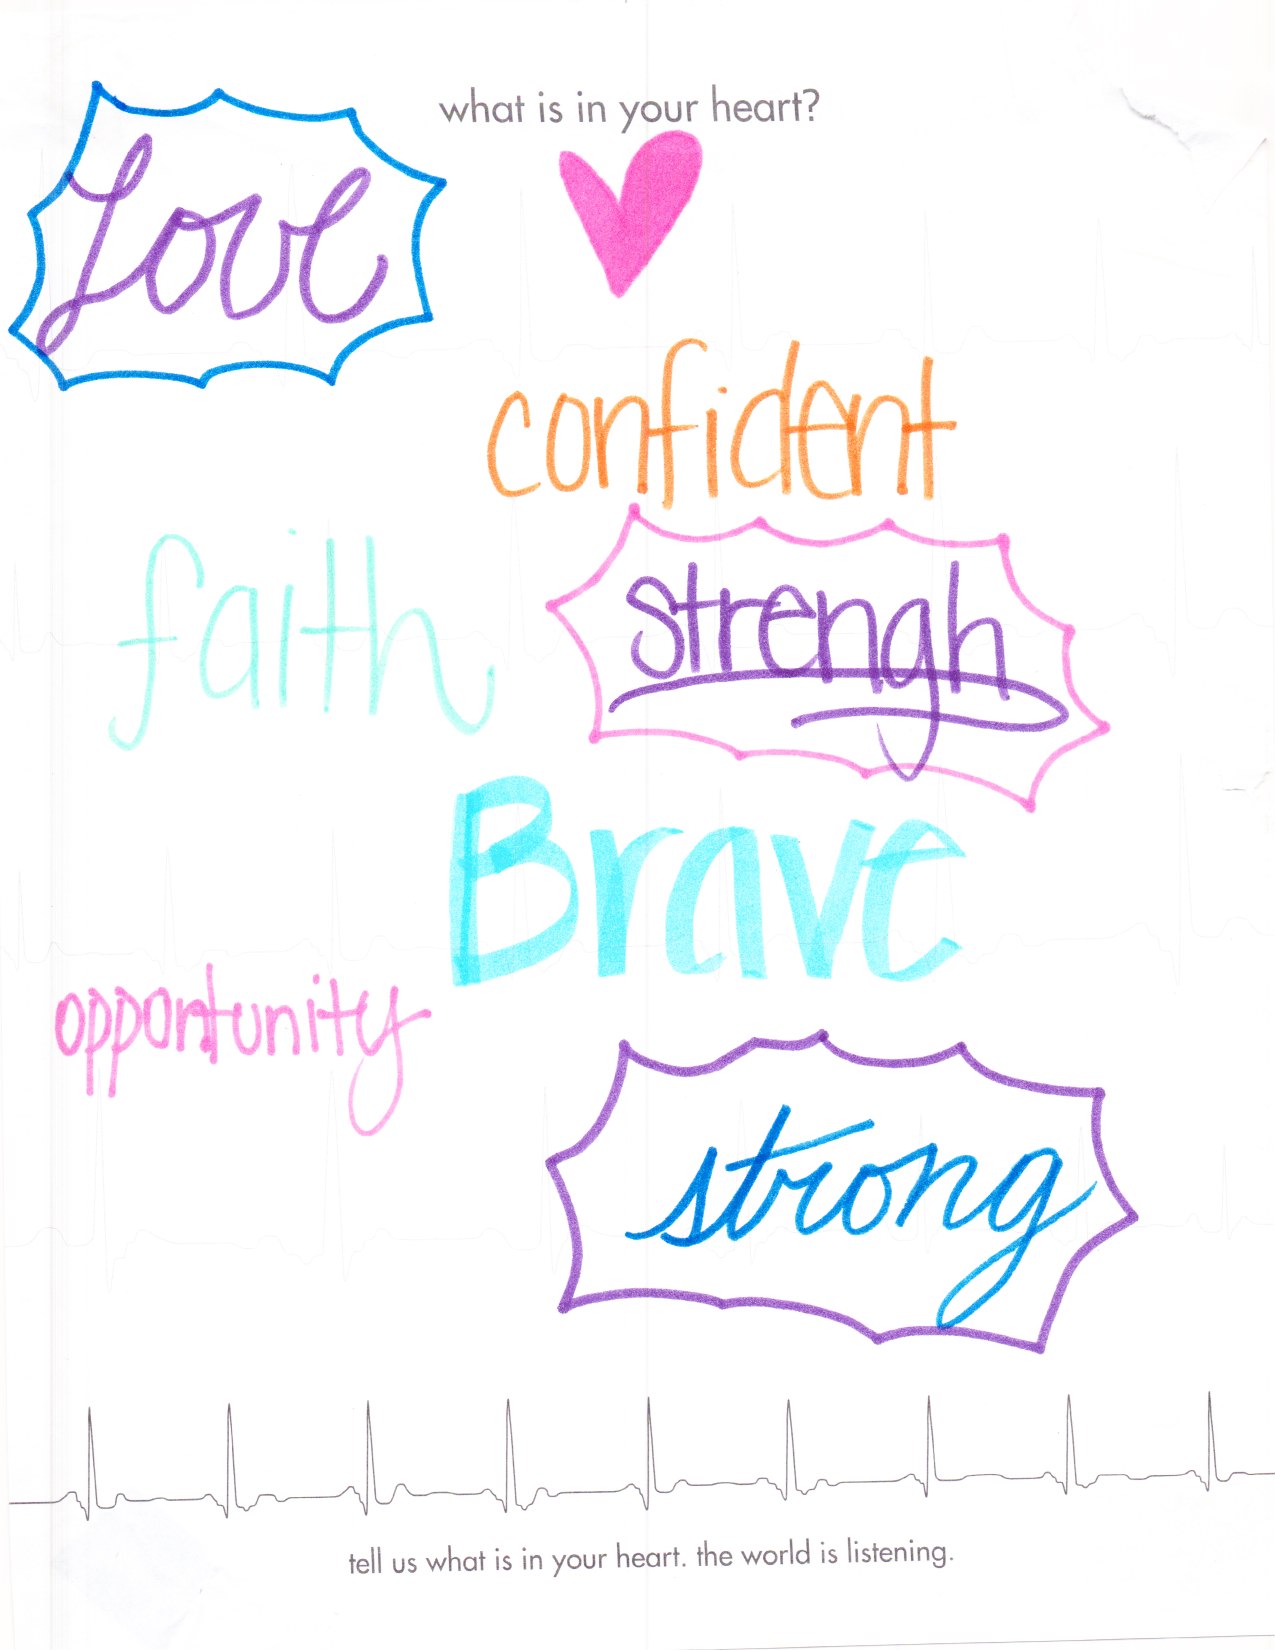 what is in your heart?
Love
confident
faith
strengh
Brave
opportunity
strong
tell us what is in your heart. the world is listening.